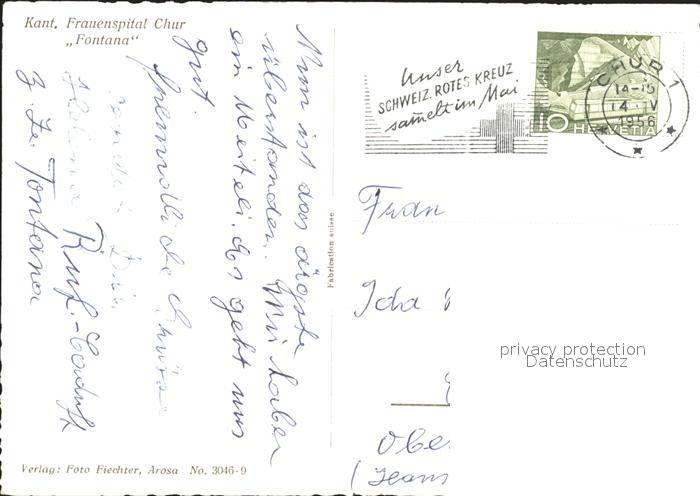 Kant. Frauenspital Chur
„Fontana“
Nun ist das ärgste
überstanden. Wir haben
ein Meiteli. Es geht uns
gut.
Freundliche Grüsse
sendet Dir
Ruf.-Caduff
z. Z. Fontana
Fabrication suisse
Verlag: Foto Fiechter, Arosa No. 3046-9
Unser
SCHWEIZ. ROTES KREUZ
sammelt im Mai
CHUR 1
14-15
1956
10 HELVETIA
Frau
Ida
privacy protection
Datenschutz